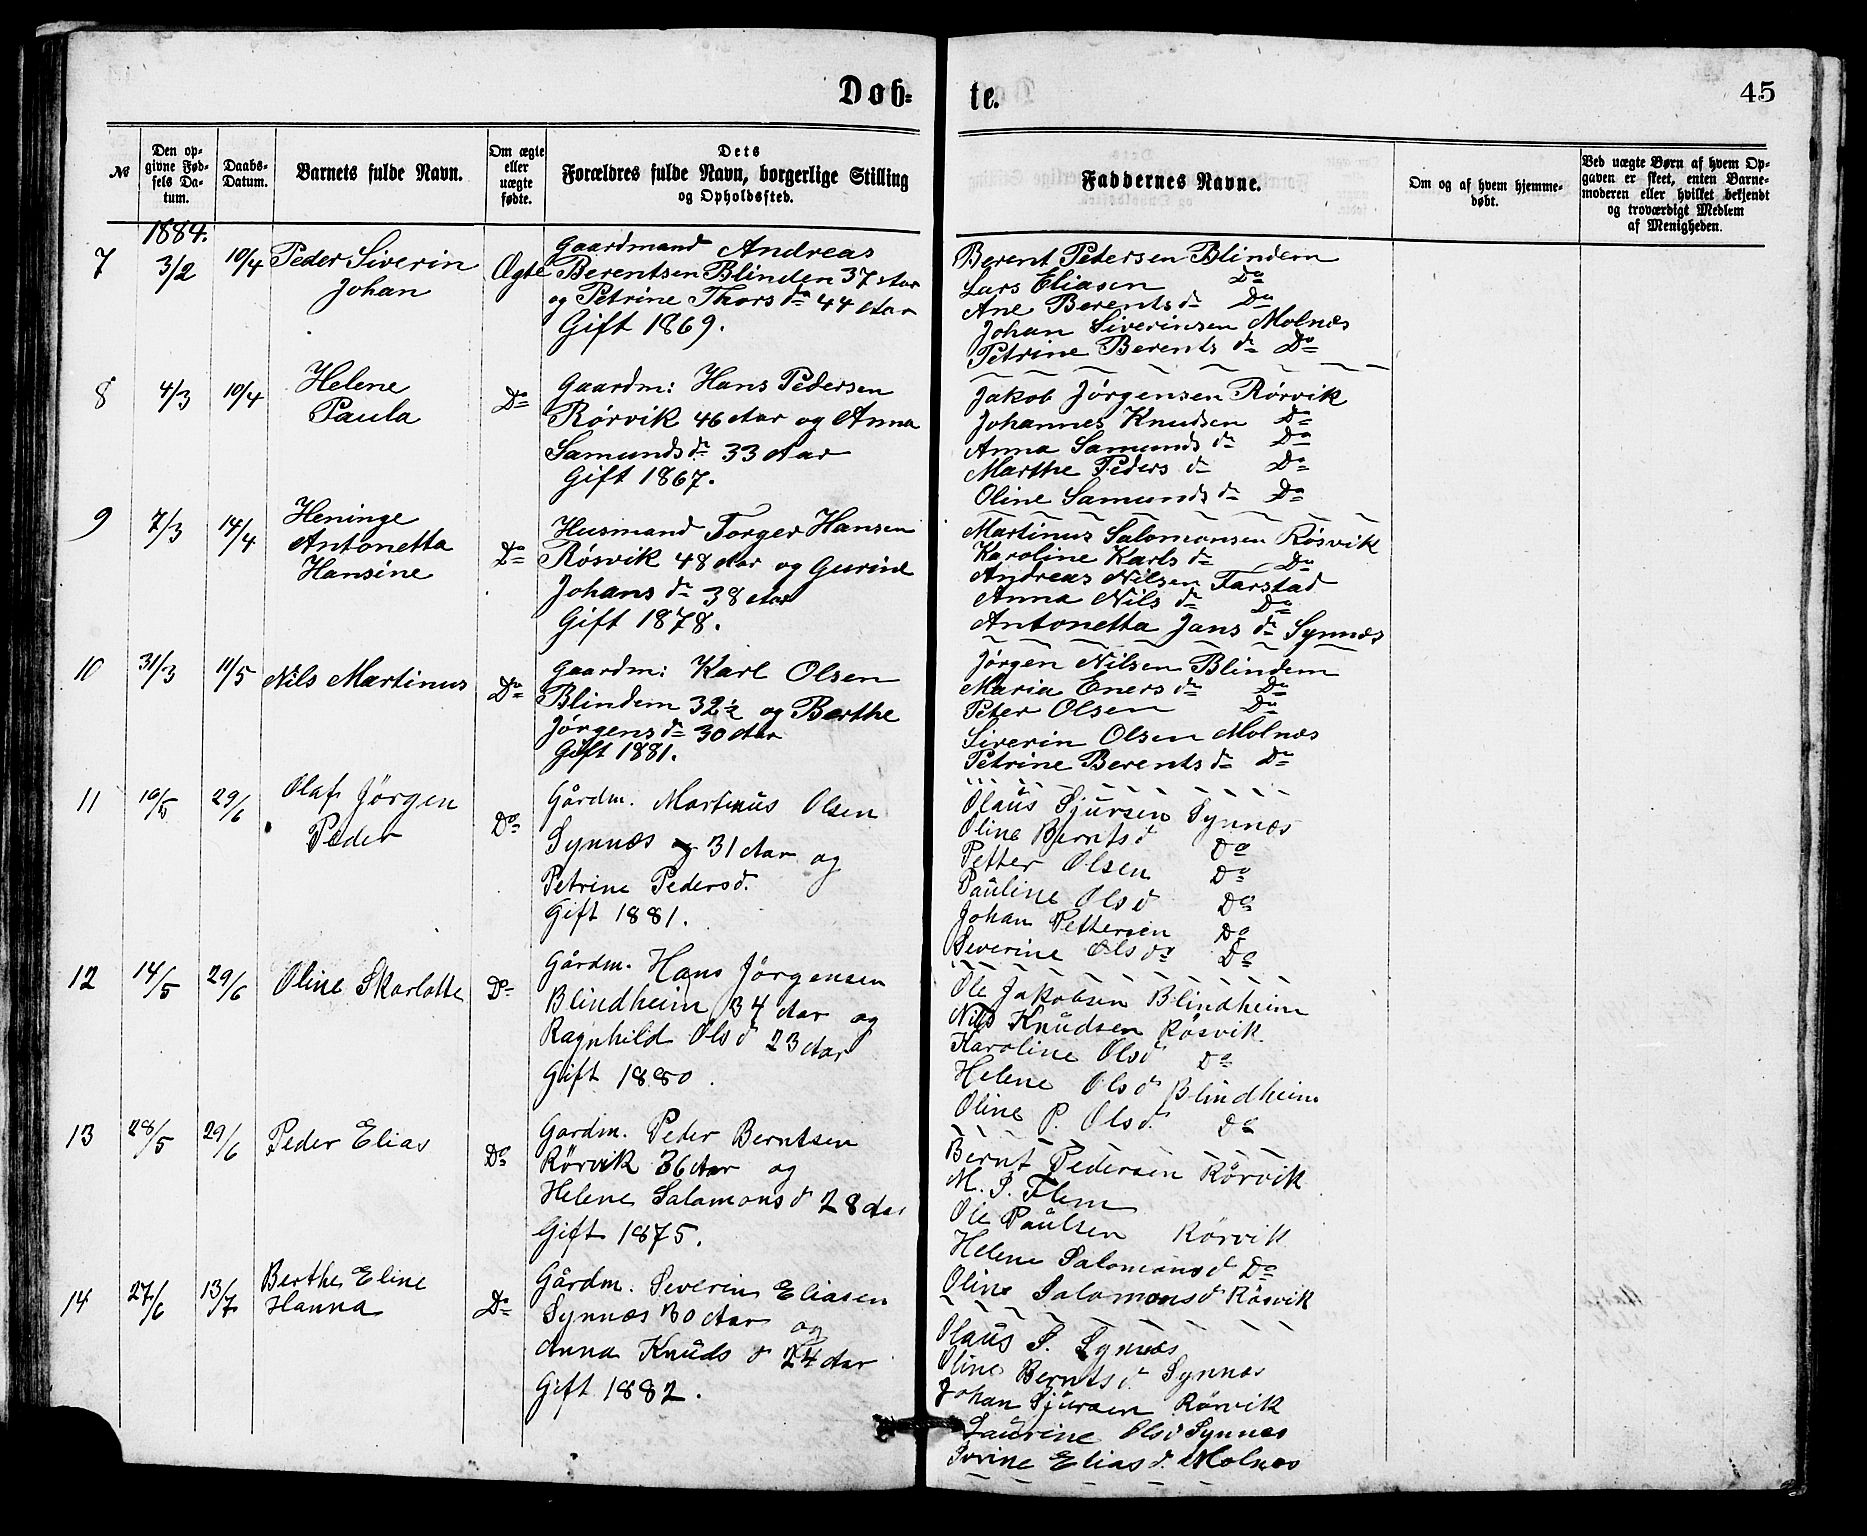 Døb-
te.
45
№
Den op-
givne Fød-
sels Da-
tum.
Daabs-
Datum.
Barnets fulde Navn.
Om ægte
eller
uægte
fødte.
Dets
Forældres fulde Navn, borgerlige Stilling
og Opholdssted.
Faddernes Navne.
Om og af hvem hjemme-
døbt.
Ved uægte Børn af hvem Op-
gaven er skeet, enten Barne-
moderen eller hvilket bekjendt
og troværdigt Medlem
af Menigheden.
1884.
7
3/2
10/4
Peder Siverin
Johan
Ægte
Gaardmand Andreas
Berentsen Blinden 37 Aar
og Petrine Thors dr 44 Aar
Gift 1869.
Berent Petersen Blindem
Lars Eliasen Do
Ane Berents dr Do
Johan Siverinsen Molnæs
Petrine Berents dr Do
8
4/3
10/4
Helene
Paula
Do
Gaardm: Hans Pedersen
Rørvik 46 Aar og Anna
Samunds dr 33 Aar
Gift 1867.
Jakob Jørgensen Rørvik
Johannes Knudsen Do
Anna Samunds dr Do
Marthe Peders dr Do
Oline Samunds dr Do
9
7/3
14/4
Heninge
Antonetta
Hansine
Do
Husmand Torger Hansen
Røsvik 48 Aar og Gurine
Johans dr 38 Aar
Gift 1878.
Martinus Salomonsen Røsvik
Karoline Karls dr Do
Andreas Nilsen Farstad
Anna Nils dr Do
Antonetta Jans dr Synnæs
10
31/3
11/5
Nils Martinus
Do
Gaardm: Karl Olsen
Blindem 32½ og Berthe
Jørgens dr 30 Aar
Gift 1881.
Jørgen Nilsen Blindem
Maria Eners dr Do
Peter Olsen Do
Siverin Olsen Molnæs
Petrine Berents dr Do
11
10/5
29/6
Olaf Jørgen
Peder
Do
Gårdm. Martinus Olsen
Synnæs og 31 Aar og
Petrine Pedersd.
Gift 1881.
Olaus Sjursen Synnæs
Oline Berntsd Do
Petter Olsen Do
Pauline Olsd Do
Johan Pettersen Do
Severine Olsdr Do
12
14/5
29/6
Oline Skarlotte
Do
Gårdm. Hans Jørgensen
Blindheim 34 Aar og
Ragnhild Olsd 23 Aar
Gift 1880.
Ole Jakobsen Blindheim
Nils Knudsen Røsvik
Karoline Olsd Do
Helene Olsd Blindheim
Oline P. Olsd. Do
13
28/5
29/6
Peder Elias
Do
Gardm. Peder Berntsen
Rørvik 36 Aar og
Helene Salamonsd 28 Aar
Gift 1875.
Bernt Pedersen Rørvik
M. S. Flem
Ole Paulsen Rørvik
Helene Salomonsd Do
Oline Salomonsd Røsvik
14
27/6
13/7
Berthe Eline
Hanna
Do
Gårdm. Severin Eliasen
Synnæs 30 Aar og
Anna Knuds d 24 Aar
Gift 1882.
Olaus S. Synnæs
Oline Bernts d. Synnæs
Johan Sjursen Rørvik
Laurine Olsd Synnæs
Ivrine Elias d. Molnæs